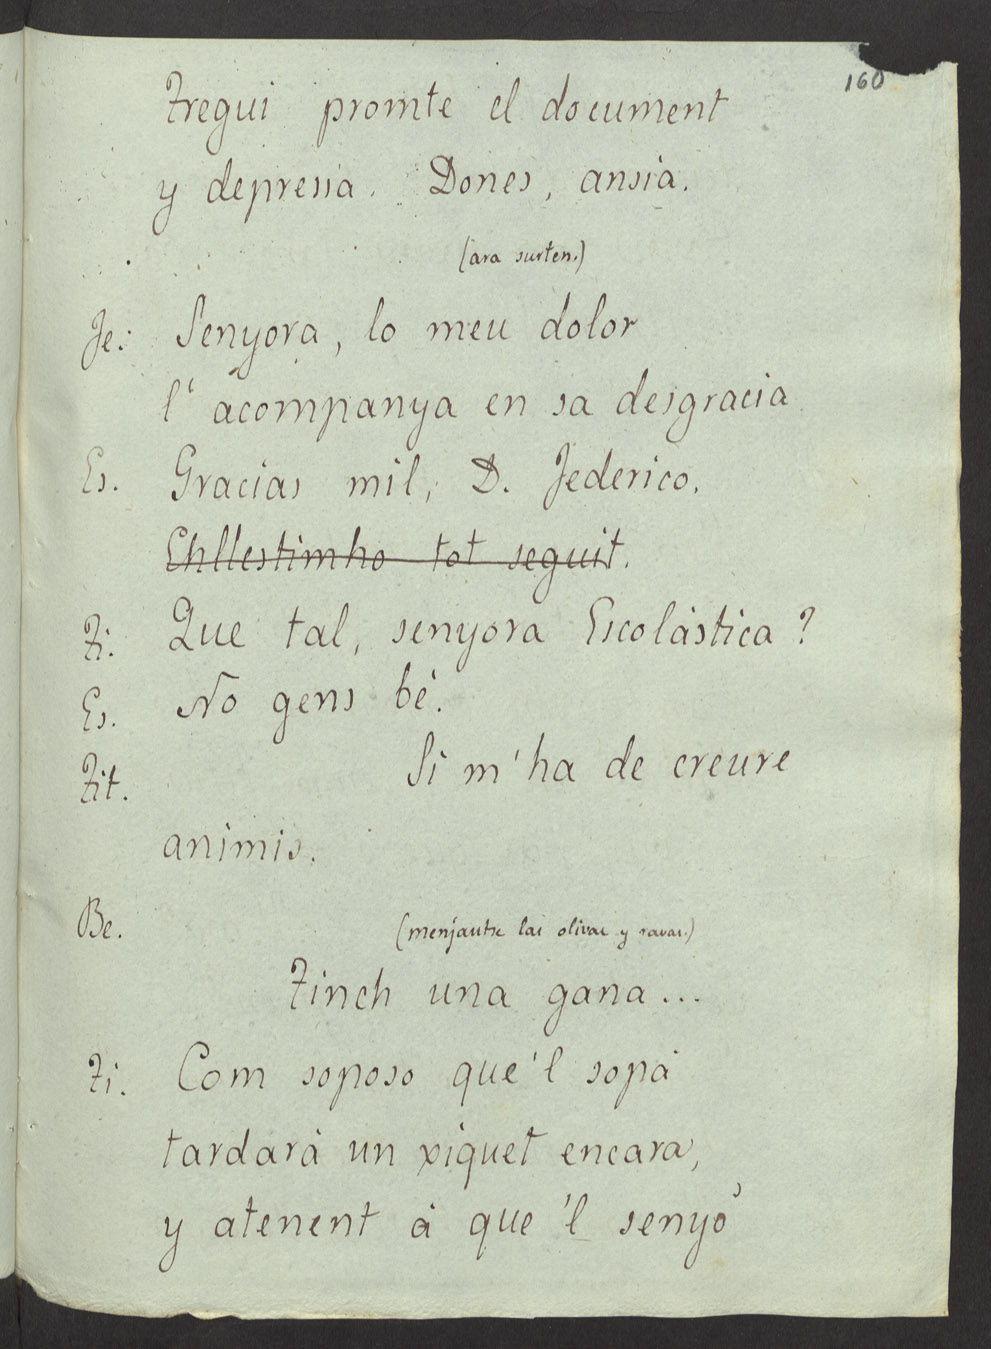 160
Tregui promte el document
y depressa. Dones, ansia.
(ara surten.)
Fe: Senyora, lo meu dolor
l' acompanya en sa desgracia
Es. Gracias mil, D. Federico.
Enllestimho tot seguit.
Ti. Que tal, senyora Escolástica?
Es. No gens bé.
Tit. Si m'ha de creure
animis.
Be. (menjantse las olivas y ravas.)
Tinch una gana...
Ti. Com soposo que'l sopá
tardará un xiquet encara,
y atenent á que 'l senyó